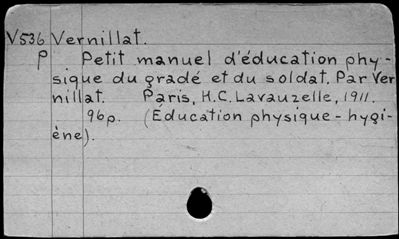 V536 Vernillat.
p Petit manuel d'éducation phy-
sique du gradé et du soldat. Par Ver
nillat. Paris, H.C. Lavauzelle, 1911.
96p. (Education physique - hygi-
ène).